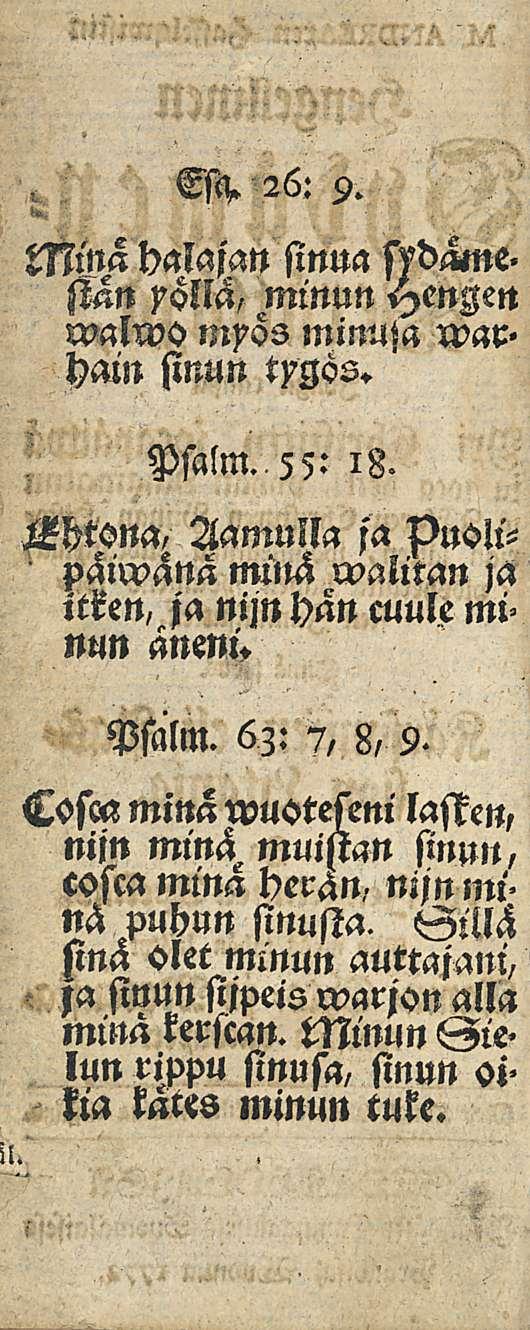 Esa. 26: 9.
Minä halajan sinua sydäme-
stän yöllä, minun Hengen
walwo myös minusa war-
hain sinun tygös.
Psalm. 55: 18.
Ehtona, Aamulla ja Puoli-
päiwänä minä walitan ja
itken, ja nijn hän cuule mi-
nun äneni.
Psalm. 63: 7, 8, 9.
Cosca minä wuoteseni lasken,
nijn minä muistan sinun,
cosca minä herän, nijn mi-
nä puhun sinusta. Sillä
sinä olet minun auttajani,
ja sinun sijpeis warjon alla
minä kerscan. Minun Sie-
lun rippu sinusa, sinun oi-
kia kätes minun tuke.